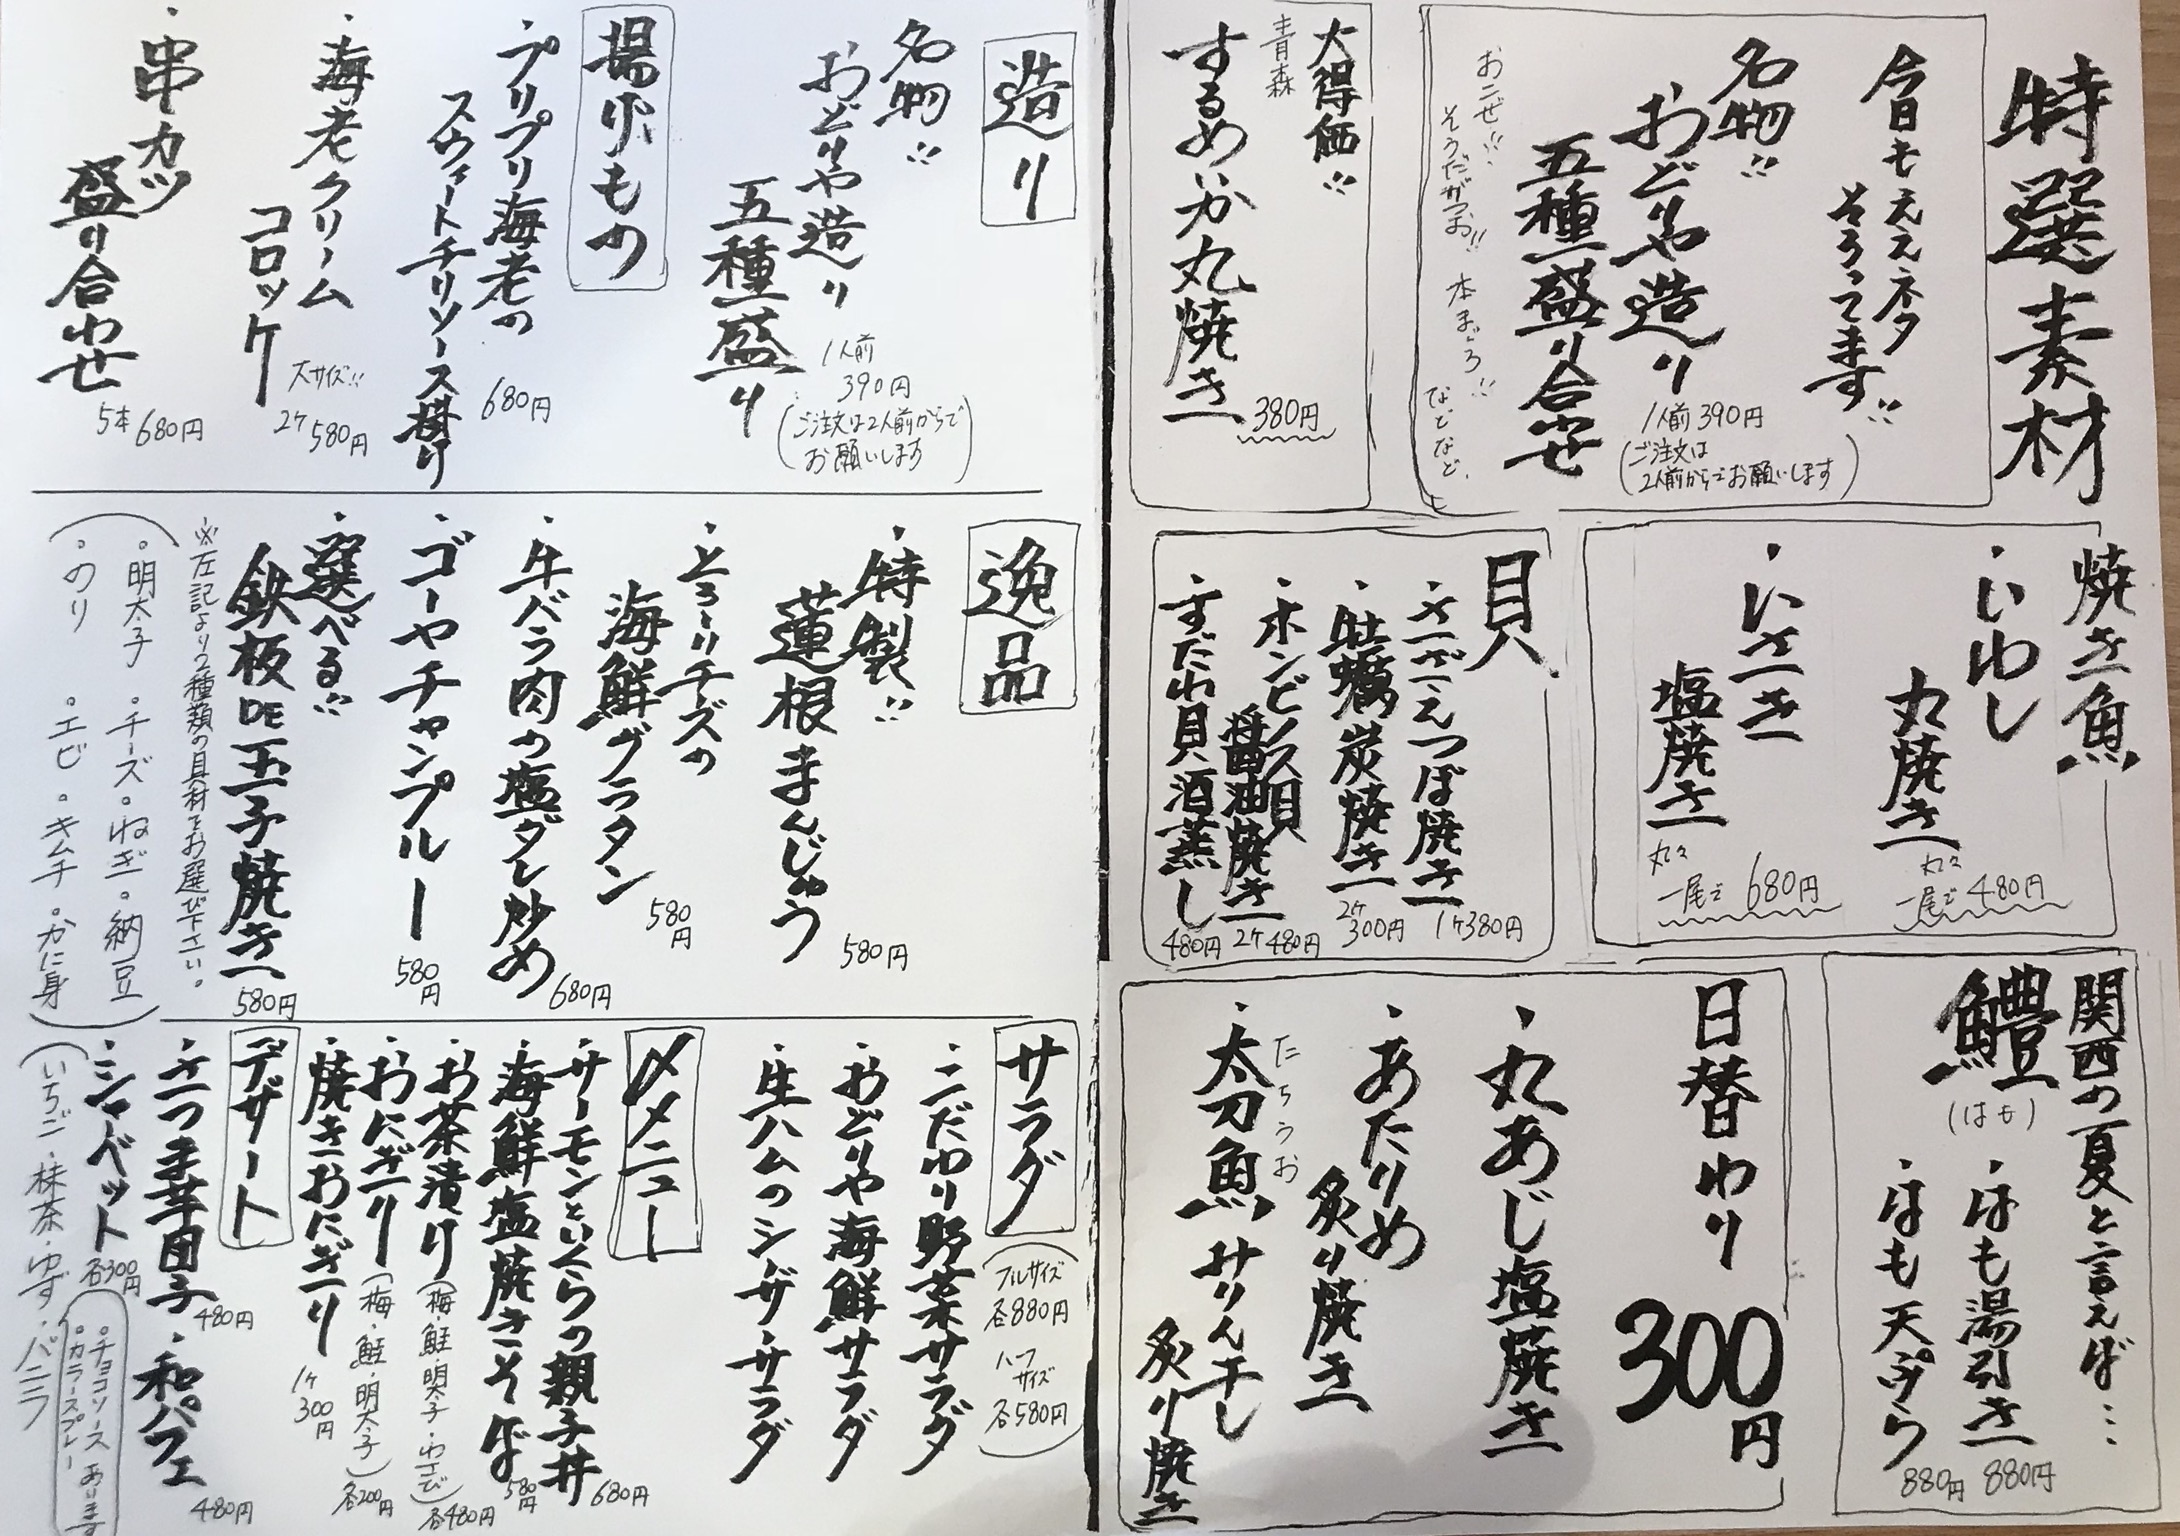 特選素材
今日もええネタ
そろってます!!
名物!!
おどりや造り
五種盛り合わせ
1人前390円
(ご注文は
2人前からでお願いします)
おこぜ!!
そうだがつお!! 本まぐろ!!
などなど、
大得価!!
青森
するめいか丸焼き
380円
焼き魚
・いわし
丸焼き
丸々
一尾で480円
・いさき
塩焼き
丸々
一尾で680円
貝
・さざえつぼ焼き
1ヶ380円
・牡蠣炭焼き
2ケ
300円
・ホンビノス貝
醤油焼き
2ケ480円
・すだれ貝酒蒸し
480円
関西の夏と言えば…
鱧
(はも)
・はも湯引き
880円
・はも天ぷら
880円
日替わり
300円
・丸あじ塩焼き
・あたりめ
炙り焼き
たちうお
・太刀魚みりん干し
炙り焼き
造り
名物!!
おどりや造り
五種盛り
1人前
390円
(ご注文は2人前からで
お願いします)
揚げもの
・プリプリ海老の
スウィートチリソース掛け
680円
・海老クリーム
コロッケ
大サイズ!!
2ケ580円
・串カツ
盛り合わせ
5本680円
逸品
・特製!!
蓮根まんじゅう
580円
・とろ〜りチーズの
海鮮グラタン
580円
・牛バラ肉の塩ダレ炒め
680円
・ゴーヤチャンプルー
580円
・選べる!!
鉄板DE玉子焼き
580円
※左記より2種類の具材をお選び下さい。
(。明太子 。チーズ。ねぎ。納豆
。のり 。エビ。キムチ。かに身)
サラダ
(フルサイズ
各880円
ハーフ
サイズ
各580円)
・こだわり野菜サラダ
・おどりや海鮮サラダ
・生ハムのシーザーサラダ
〆メニュー
・サーモンといくらの親子丼
680円
・海鮮塩焼きそば
580円
・お茶漬け
(梅・鮭・明太子・わさび)各480円
・おにぎり
(梅・鮭・明太子)各200円
・焼きおにぎり
1ヶ
300円
デザート
・さつま芋団子
480円
・和パフェ
480円
・シャーベット
各300円
(いちご・抹茶・ゆず・バニラ
。チョコソース
。カラースプレー
あります